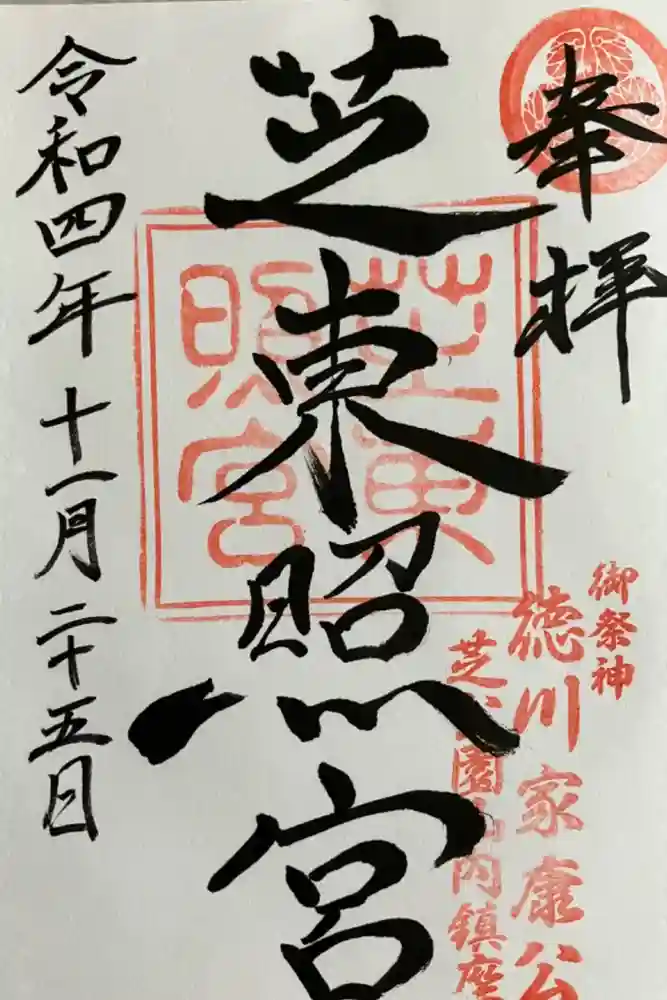 奉拝
御祭神
徳川家康公
芝公園丸山内鎮座
芝東照宮
芝東
照宮
令和四年十一月二十五日